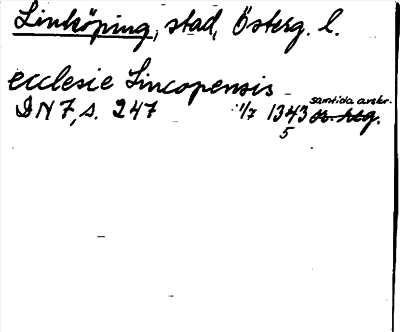 Linköping, stad, Österg. l.
ecclesie Lincopensis
DN 7, s. 247 11/7 1343 samtida avskr.
5